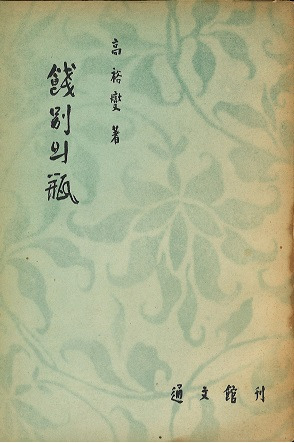 高裕燮 著
餞別의 瓶
通文館 刊